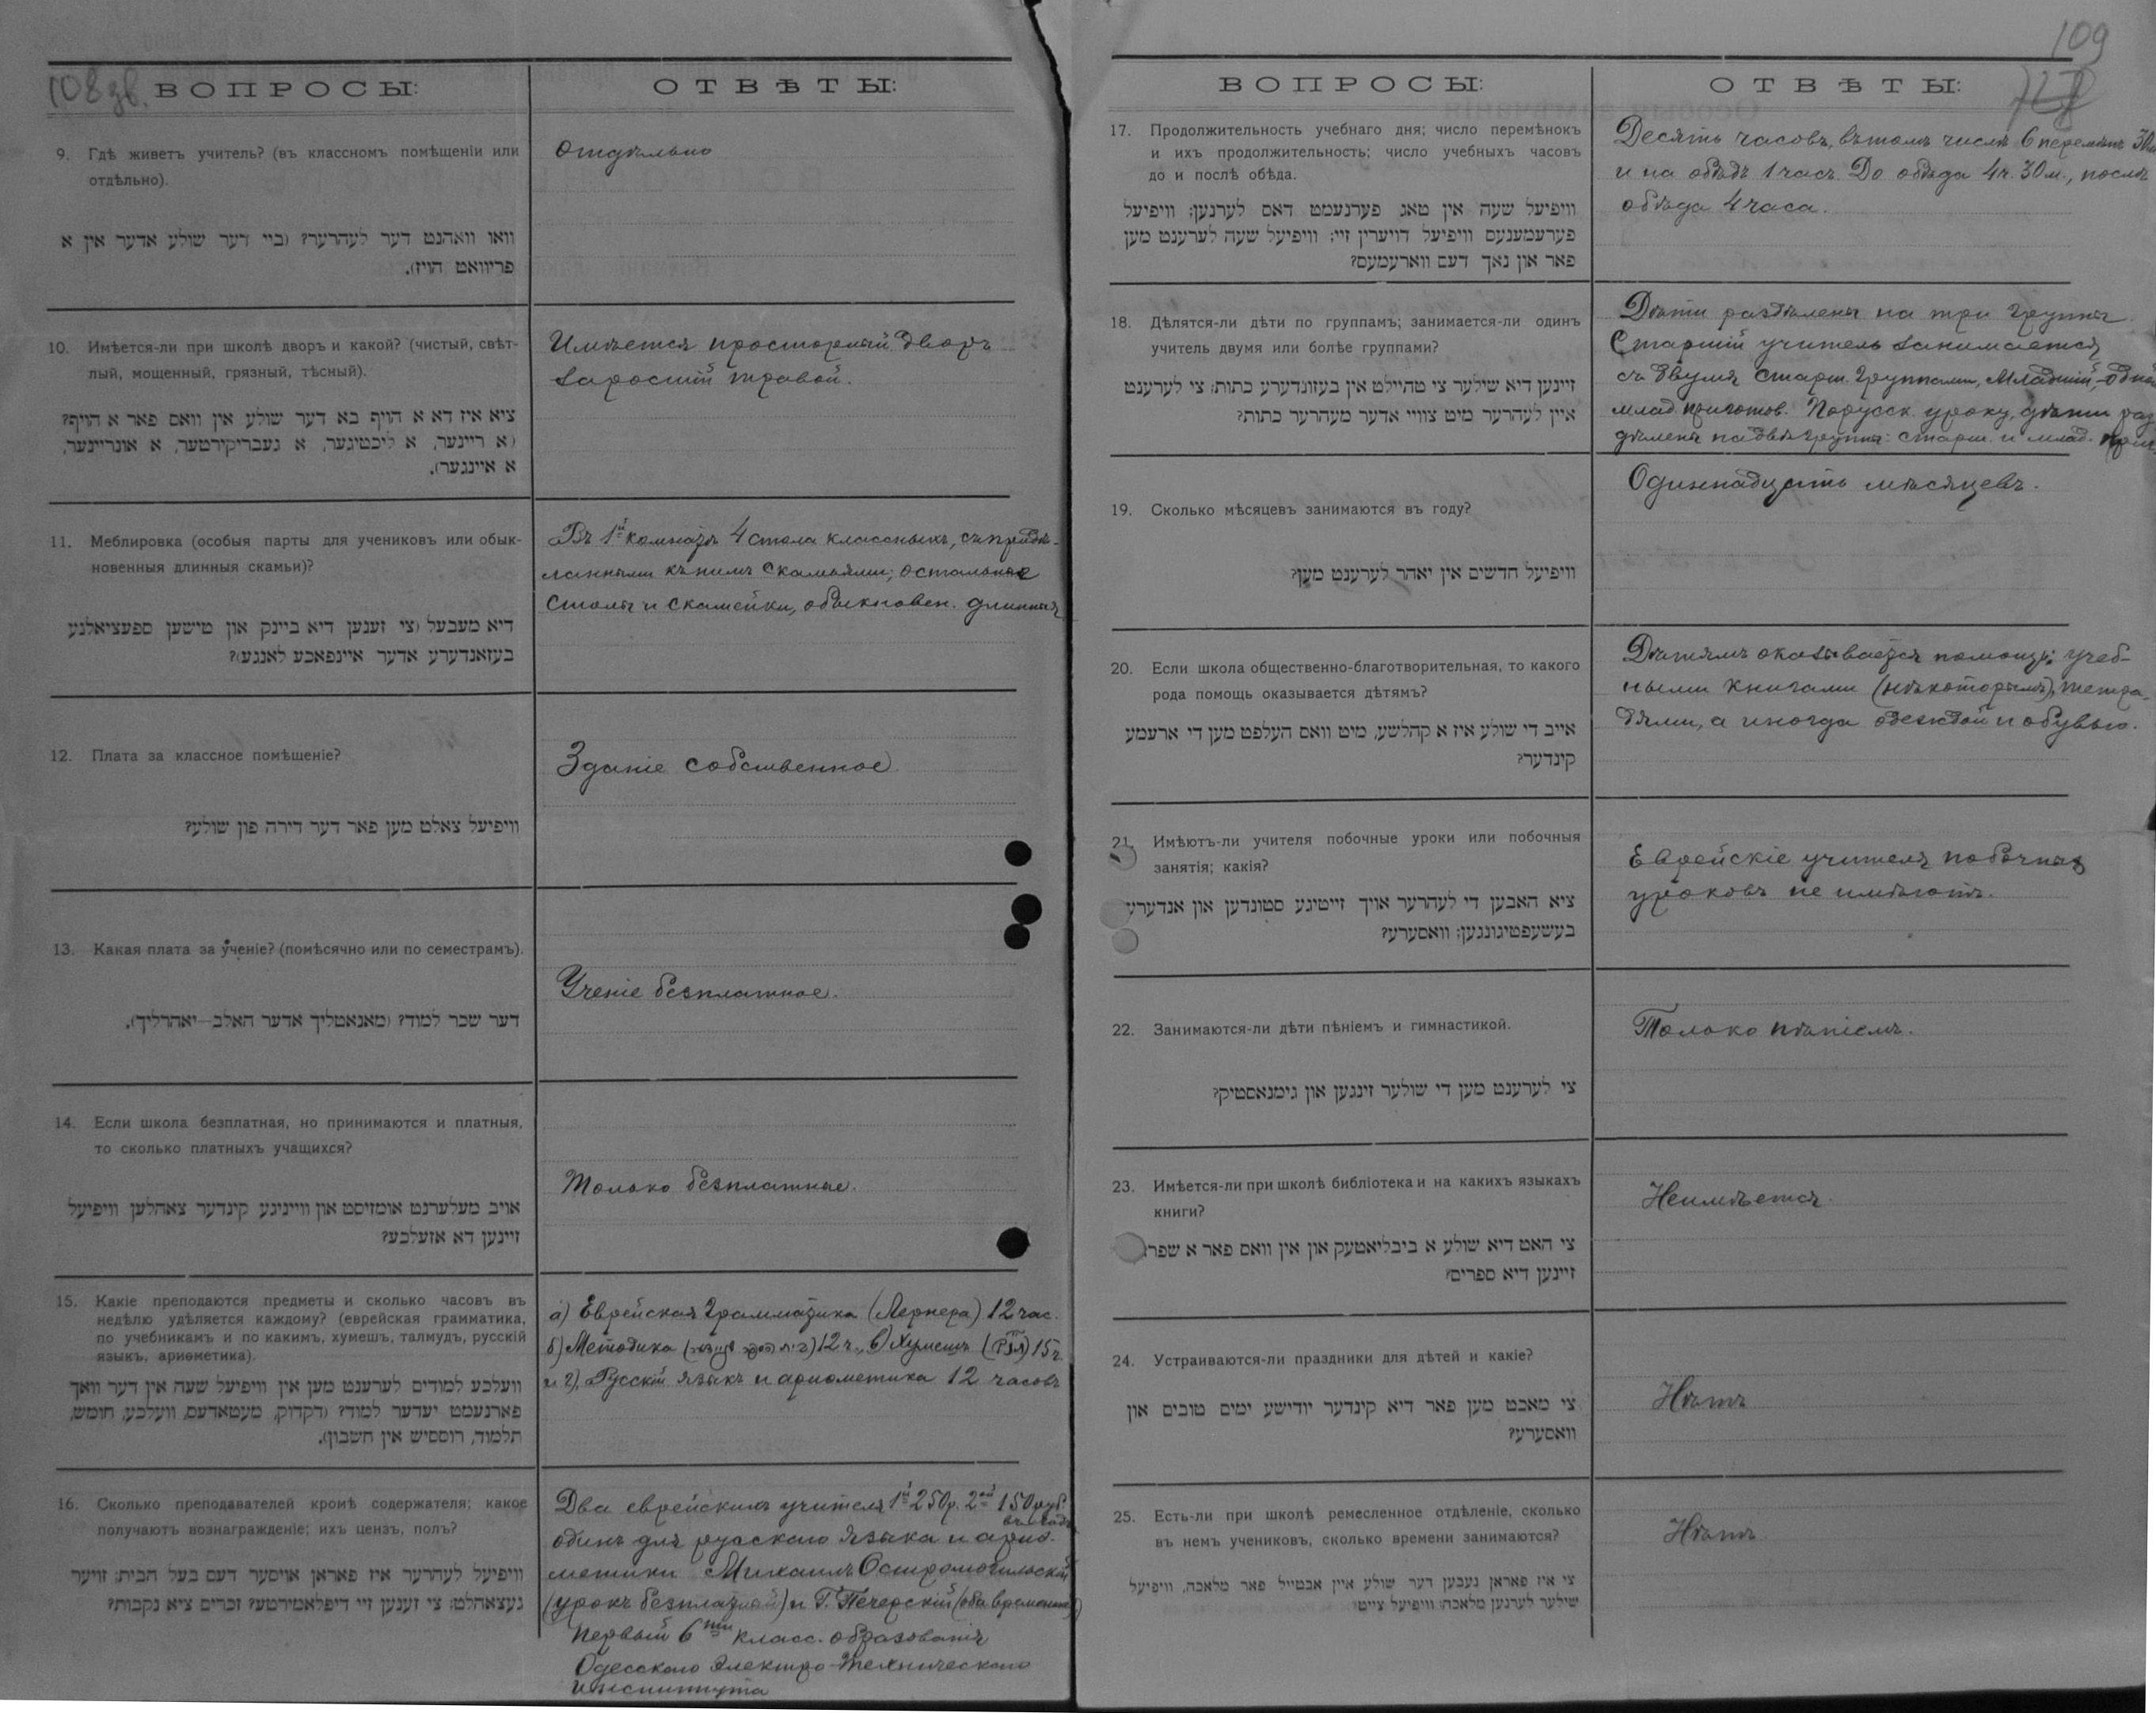 108 зв.
ВОПРОСЫ:
ОТВѢТЫ:
9. Гдѣ живетъ учитель? (въ классномъ помѣщеніи или
отдѣльно).
וואו וואהנט דער לעהרער? (ביי דער שולע אדער אין א
פריוואט הויז).
Отдѣльно
10. Имѣется-ли при школѣ дворъ и какой? (чистый, свѣт-
лый, мощенный, грязный, тѣсный).
ציא איז דא א הויף בא דער שולע אין וואס פאר א הויף?
(א ריינער, א ליכטיגער, א געבריקירטער, א אונריינער,
א איינגער).
Имѣется просторный дворъ
заросшій травой.
11. Меблировка (особыя парты для учениковъ или обык-
новенныя длинныя скамьи)?
דיא מעבעל (צי זענען דיא ביינק און טישען ספעציאלנע
בעזאנדערע אדער איינפאכע לאנגע)?
Въ 1й комнатѣ 4 стола классныхъ, съ придѣ-
ланными къ нимъ скамьями; остальные
столы и скамейки, обыкновен. длинныя
12. Плата за классное помѣщеніе?
וויפיעל צאלט מען פאר דער דירה פון שולע?
Зданіе собственное
13. Какая плата за ученіе? (помѣсячно или по семестрамъ).
דער שכר למוד? (מאנאטליך אדער האלב—יאהרליך).
Ученіе безплатное.
14. Если школа безплатная, но принимаются и платныя,
то сколько платныхъ учащихся?
אויב מעלערנט אומזיסט און ווייניגע קינדער צאהלען וויפיעל
זיינען דא אזעלכע?
Только безплатные.
15. Какіе преподаются предметы и сколько часовъ въ
недѣлю удѣляется каждому? (еврейская грамматика,
по учебникамъ и по какимъ, хумешъ, талмудъ, русскій
языкъ, ариѳметика).
וועלכע למודים לערענט מען אין וויפיעל שעה אין דער וואך
פארנעמט יעדער למוד? (דקדוק, מעטאדעס, וועלכע, חומש,
תלמוד, רוססיש אין חשבון).
а) Еврейская грамматика (Лернера) 12 час.
б) Методика 12 ч., в) Хумешъ 15 ч.
и г), Русскій языкъ и ариѳметика 12 часовъ
16. Сколько преподавателей кромѣ содержателя; какое
получаютъ вознагражденіе; ихъ цензъ, полъ?
וויפיעל לעהרער איז פאראן אויסער דעם בעל הבית; זויער
געצאהלט; צי זענען זיי דיפלאמירטע? זכרים ציא נקבות?
Два еврейскихъ учителя 1й 250 р. 2ой 150 руб.
въ годъ
одинъ для русскаго языка и ариѳ-
метики Михаилъ Остромогильскій
(урокъ безплатный) и Г. Печерскій (оба временно)
Первый 6ти класс. образованія
Одесскаго Электро-Техническаго
института
109
ВОПРОСЫ:
ОТВѢТЫ:
17. Продолжительность учебнаго дня; число перемѣнокъ
и ихъ продолжительность; число учебныхъ часовъ
до и послѣ обѣда.
וויפיעל שעה אין טאג פערנעמט דאס לערנען; וויפיעל
פערעמענעס וויפיעל דויערין זיי; וויפיעל שעה לערענט מען
פאר און נאך דעם ווארעמעס?
Десять часовъ, въ томъ числѣ 6 перемѣнъ 30 м
и на обѣдъ 1 часъ. До обѣда 4 ч. 30 м., послѣ
обѣда 4 часа.
18. Дѣлятся-ли дѣти по группамъ; занимается-ли одинъ
учитель двумя или болѣе группами?
זיינען דיא שילער צי טהיילט אין בעזונדערע כתות; צי לערענט
איין לעהרער מיט צוויי אדער מעהרער כתות?
Дѣти раздѣлены на три группы.
Старшій учитель занимается
съ двумя старш. группами, Младшій,-одной
млад. приготов. По русск. уроку, дѣти раз
дѣлены на двѣ группы: старш. и млад.
19. Сколько мѣсяцевъ занимаются въ году?
וויפיעל חדשים אין יאהר לערענט מען?
Одиннадцать мѣсяцевъ.
20. Если школа общественно-благотворительная, то какого
рода помощь оказывается дѣтямъ?
אייב די שולע איז א קהלשע, מיט וואס העלפט מען די ארעמע
קינדער?
Дѣтямъ оказывается помощь: учеб-
ными книгами (нѣкоторымъ), тетра-
дями, а иногда одеждой и обувью.
21. Имѣютъ-ли учителя побочные уроки или побочныя
занятія; какія?
ציא האבען די לעהרער אויך זייטיגע סטונדען און אנדערע
בעשעפטיגונגען; וואסערע?
Еврейскіе учителя побочныхъ
уроковъ не имѣютъ.
22. Занимаются-ли дѣти пѣніемъ и гимнастикой.
צי לערענט מען די שולער זינגען און גימנאסטיק?
Только пѣніемъ.
23. Имѣется-ли при школѣ библіотека и на какихъ языкахъ
книги?
צי האט דיא שולע א ביבליאטעק און אין וואס פאר א שפר
זיינען דיא ספרים?
Неимѣется.
24. Устраиваются-ли праздники для дѣтей и какіе?
צי מאכט מען פאר דיא קינדער יודישע ימים טובים און
וואסערע?
Нѣтъ
25. Есть-ли при школѣ ремесленное отдѣленіе, сколько
въ немъ учениковъ, сколько времени занимаются?
צי איז פאראן נעבען דער שולע איין אבטייל פאר מלאכה, וויפיעל
שילער לערנען מלאכה; וויפיעל צייט?
Нѣтъ